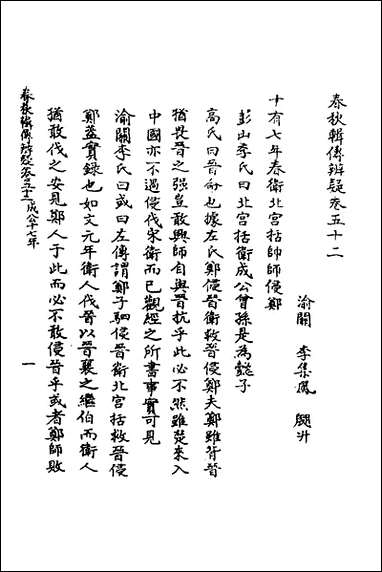 春秋輯傳辨疑卷五十二
渝關 李集鳳 翽升
十有七年春衛北宮括帥師侵鄭
彭山李氏曰北宮括衛成公曾孫是為懿子
高氏曰晉命也據左氏鄭侵晉衛救晉侵鄭夫鄭雖背晉
猶畏晉之強豈敢興師自與晉抗乎此必不然雖楚來入
中國亦不過侵伐宋衛而已觀經之所書事實可見
渝關李氏曰或曰左傳謂鄭子駟侵晉衛北宮括救晉侵
鄭蓋實錄也如文元年衛人伐晉以晉襄之繼伯而衛人
猶敢伐之安見鄭人于此而必不敢侵晉乎或者鄭師敗
春秋輯傳辨疑卷五十二 成公十七年
一